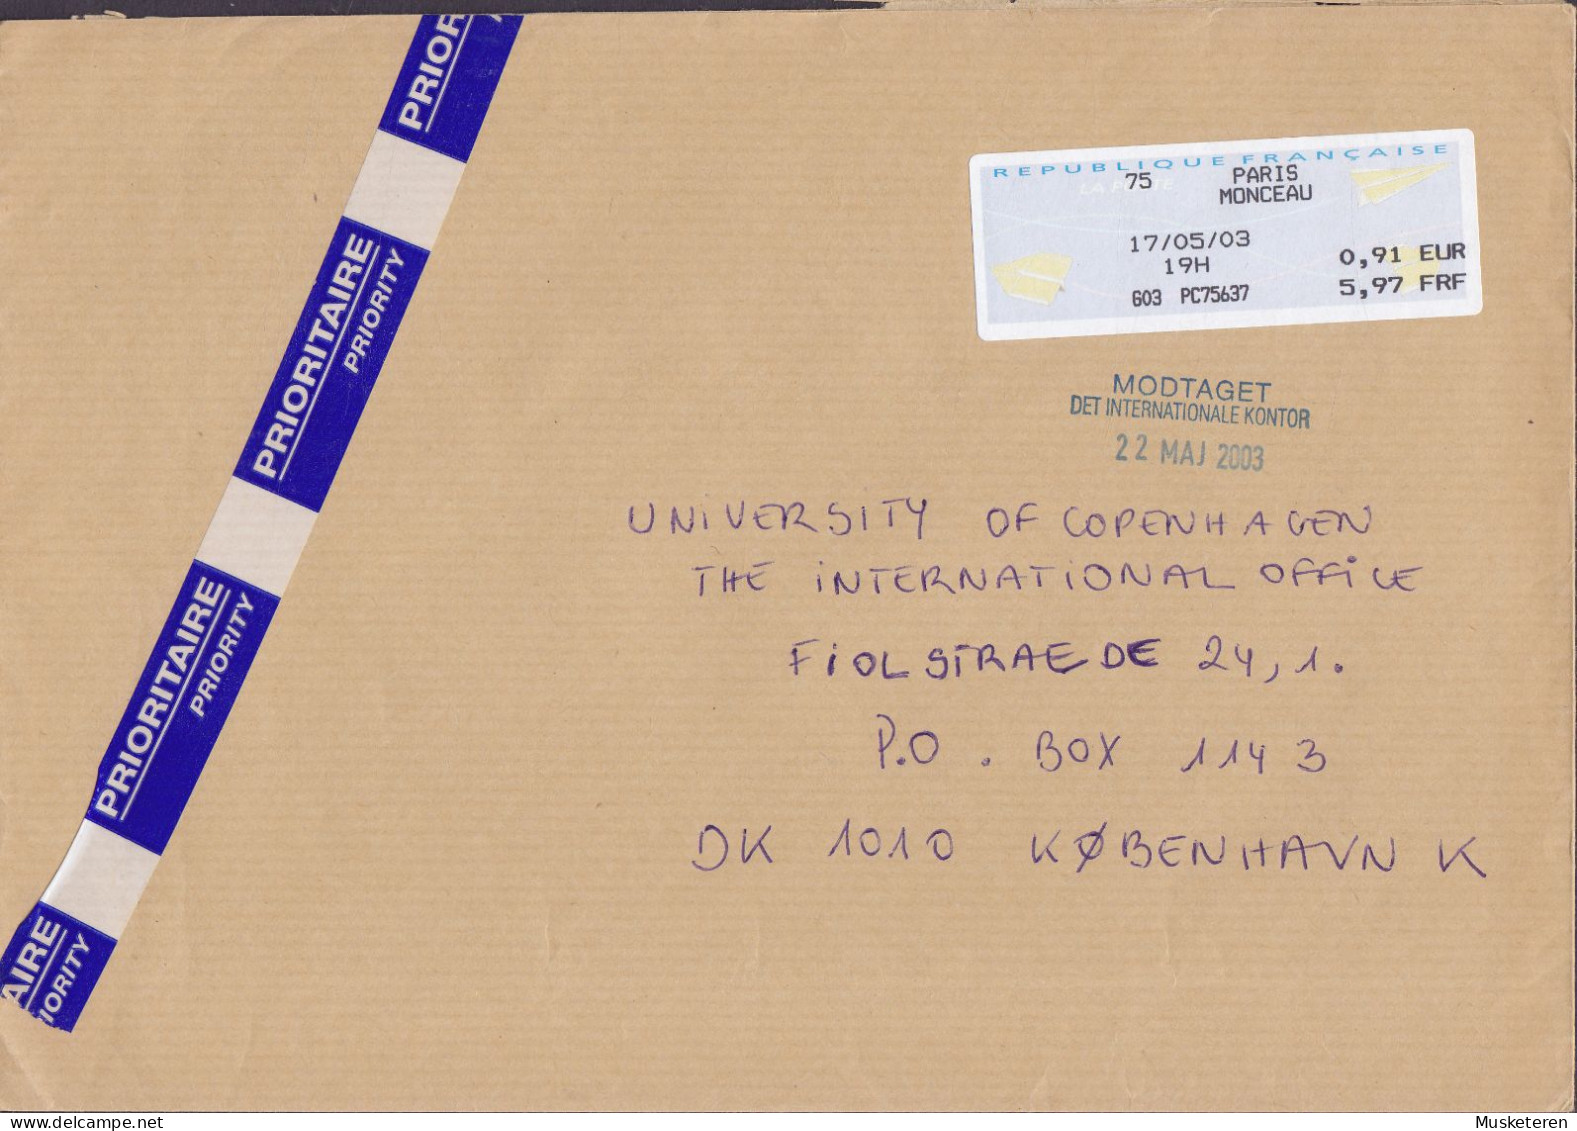 PRIOR
PRIORITAIRE
PRIORITY
PRIORITAIRE
PRIORITY
AIRE
IORITY
REPUBLIQUE FRANÇAISE
LA POSTE
75 PARIS
MONCEAU
17/05/03
19H
0,91 EUR
603 PC75637
5,97 FRF
MODTAGET
DET INTERNATIONALE KONTOR
22 MAJ 2003
UNIVERSITY OF COPENHAGEN
THE INTERNATIONAL OFFICE
FIOLSTRAEDE 24, 1.
P.O. BOX 1143
DK 1010 KØBENHAVN K
www.delcampe.net
Musketeren